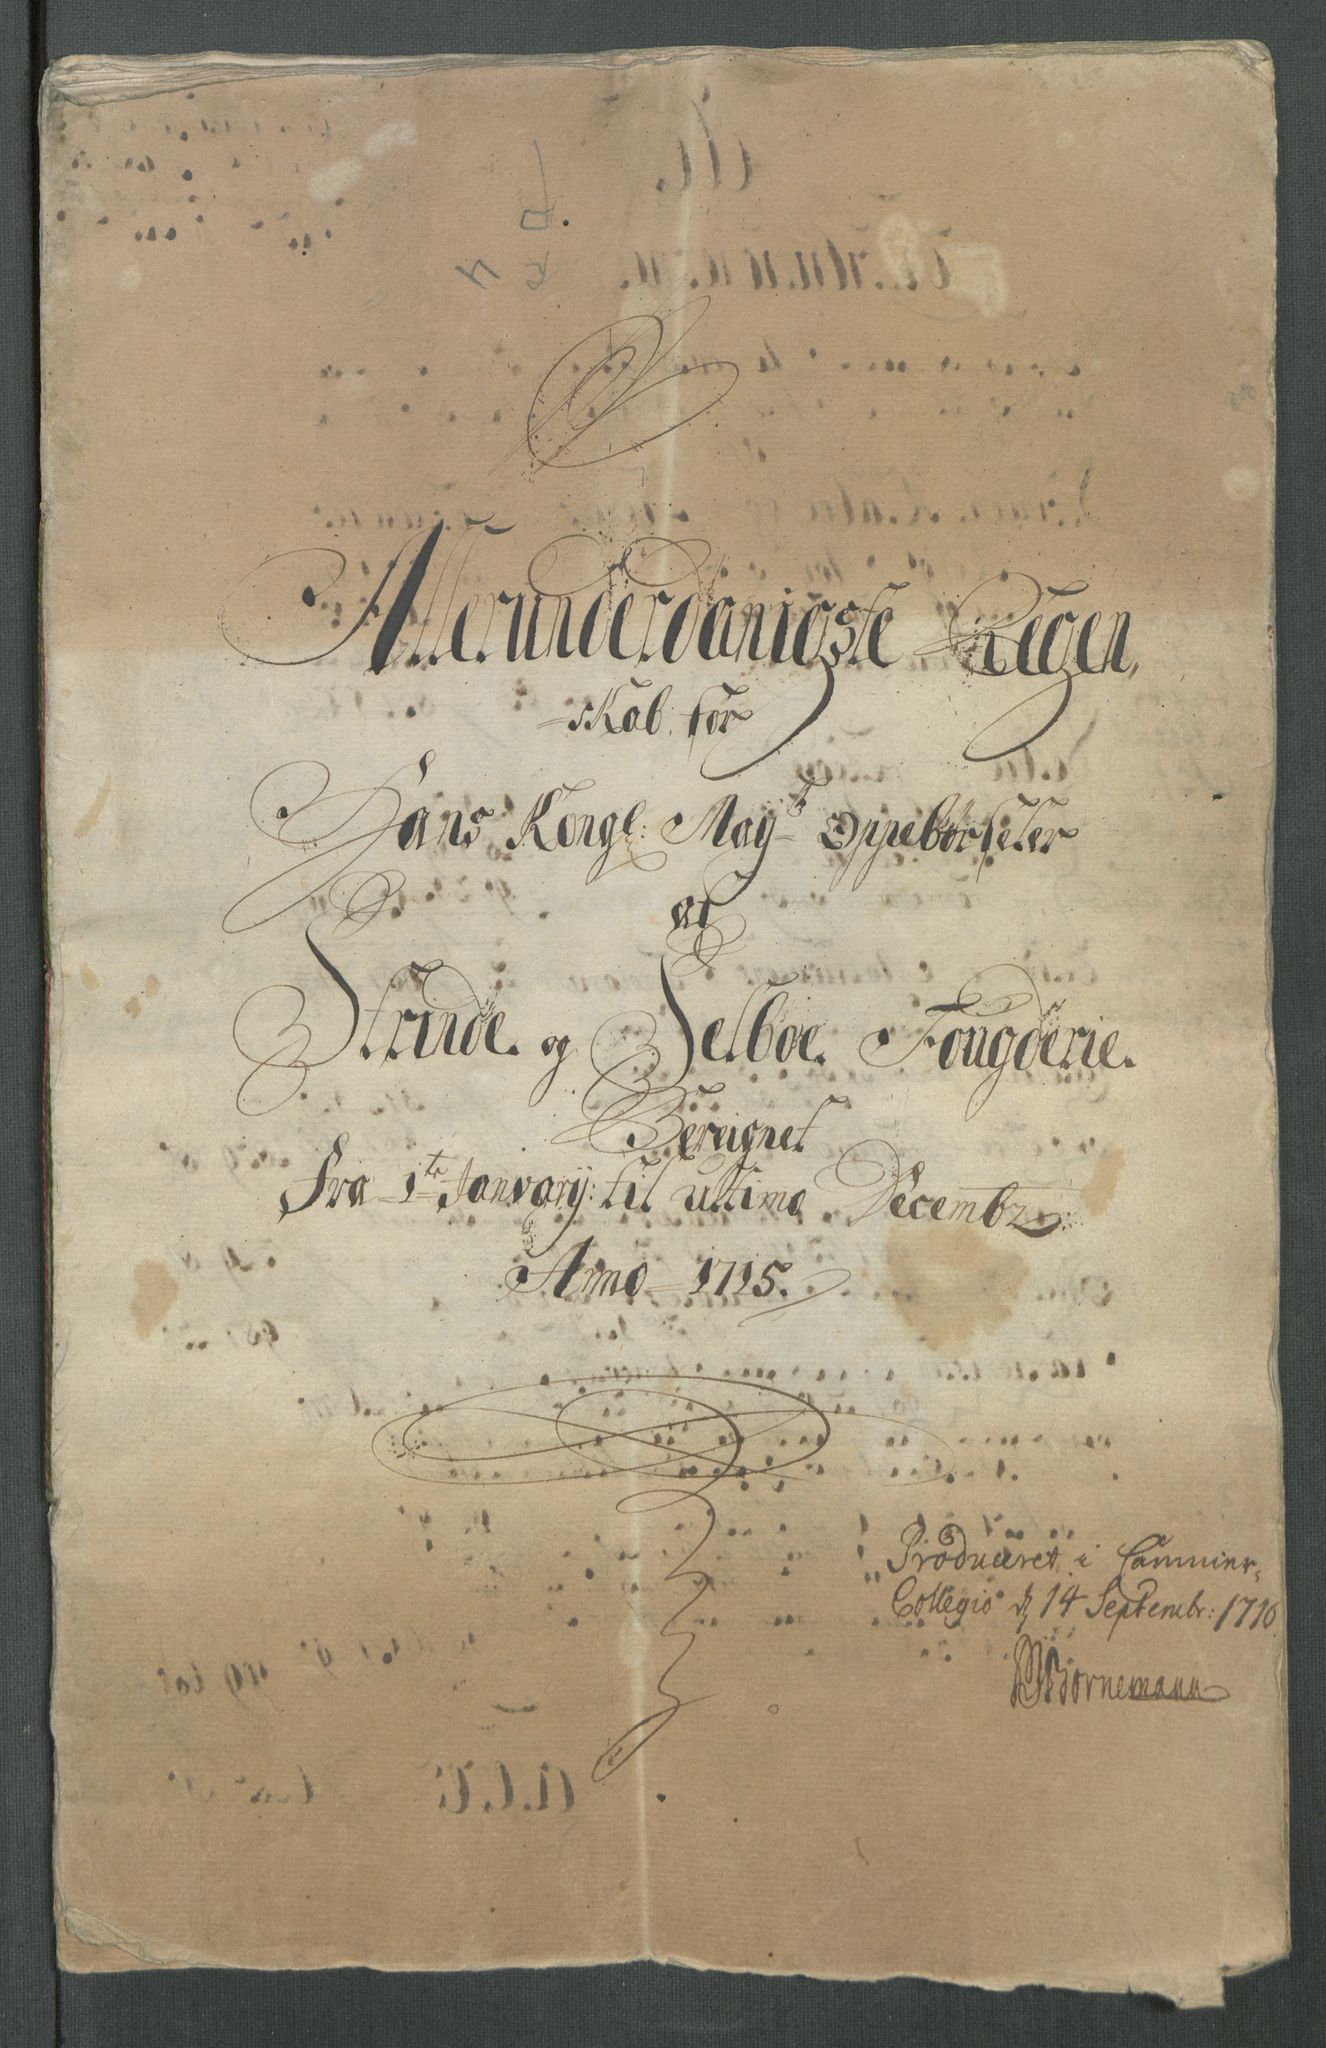 Allerunderdanigste Regen,
skab for
Hans Kongl: Mayts Oppebørseler
af
Strinde og Selboe Fougderie.
Bereignet
Fra 1te January: til ultimo Decembr:
Anno 1715.
Produceret i Cammer,
Collegio d 14 Septembr: 1716
Bornemann